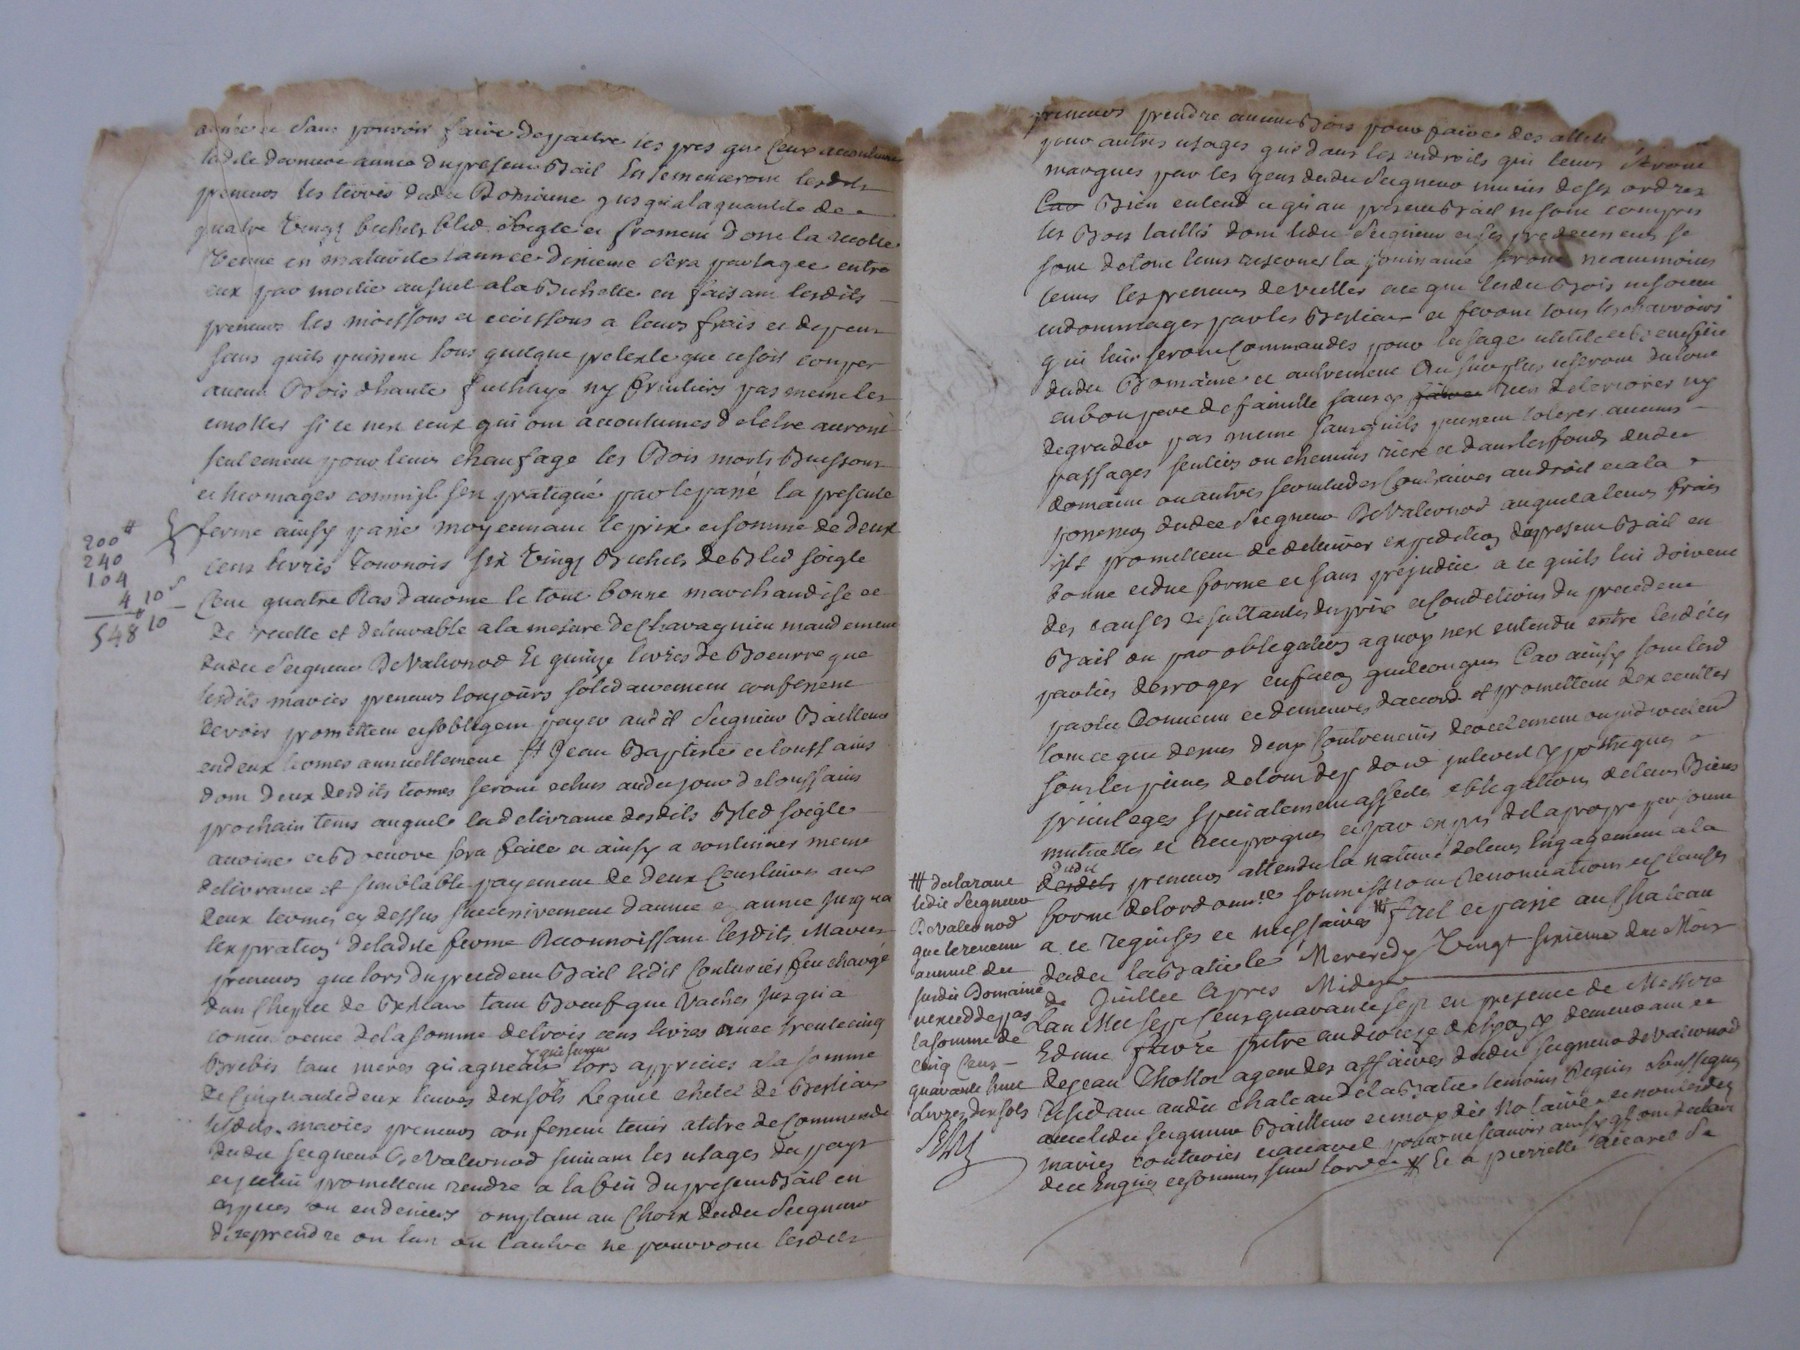 année et sans pouvoir faire depaitre les prez que ceux accoutumés
ladite derniere année du present Bail Ensemenceront lesdits
preneurs les terres dudit Domaine jusqu'a la quantité de
quatre vingt bichets bled seigle et froment dont la recolte
venue en maturité l'année dixieme sera partagée entre
eux par moitié au suel a la Bichette en faisant lesdits
preneurs les moissons et ecoissons a leurs frais et depens
sans quils puissent sous quelque pretexte que ce soit couper
aucun Bois d'haute futhaye ny fruitiers pas meme les
emotter si ce nest ceux qui ont accoutumes de letre auront
seulement pour leurs chaufage les Bois morts Buissons
et hiomages comm'il s'en pratiqué par le passé la presente
ferme ainsy passé moyennant le prix et somme de deux
cens livres Tournois six vingt Bichets de Bled seigle
Cent quatre Ras d'avoine le tout bonne marchandise et
de recette et delivrable a la mesure de Chavagnieu mandement
dudit Seigneur De Valernod Et quinze livres de Boeurre que
lesdits mariés preneurs toujours solidairement confessent
devoir promettent et s'obligent payer audit Seigneur Bailleur
en deux termes annuellement St Jean Baptiste et toussaint
dont deux desdits termes seront echus audit jour de toussaint
prochain tems auquel la delivrance desdits Bled seigle
avoine et Boeurre sera faite et ainsy a continuer meme
delivrance et semblable payement de deux cens livres aux
deux termes cy dessus successivement d'année en année jusqu'a
lexpiration de ladite ferme Reconnoissant lesdits Mariés
preneurs que lors du precedent Bail ledit Couturier fut chargé
d'un Cheptel de Bestiaux tant Boeuf que Vaches jusqu'a
concurrence de la somme de trois cens livres avec trente cinq
Brebis tant meres qu'agneaux qui furent lors appreciés a la somme
de Cinquante deux livres dix sols Lequel chetel de Bestiaux
lesdits mariés preneurs confessent tenir a titre de Commende
dudit Seigneur De Valernod suivant les usages du pays
et iceluy promettent rendre a la fin du present Bail en
especes ou en deniers omptant au Choix dudit Seigneur
de reprendre ou l'un ou l'autre ne pourront lesdits
200 ₶
240
104
4 10 s
548 ₶ 10
preneurs prendre aucun Bois pour faire des
pour autres usages que dans les endroits qui leurs seront
marqués par les gens dudit Seigneur munis de ses ordres
Car Bien entendu qu'au present Bail ne sont compris
les Bois taillis dont ledit Seigneur et ses predecesseurs se
sont de tout tems reservés la jouissance seront neanmoins
tenus les preneurs de veiller a ce que lesdits Bois ne soient
endommagés par les Bestiaux et feront tous les charrois
qui leur seront Commandés pour lusage utilité et
dudit Domaine et autrement Au surplus useront du tout
en bon pere de famille sans y faire rien deteriorer ny
degrader pas meme sans quils puissent tolerer aucuns
passages sentiers ou chemins riere et dans les fonds dudit
domaine ou autres servitudes Contraires au droit et a la
possession dudit Seigneur De Valernod auquel a leurs frais
ils promettent de delivrer expedition du present Bail en
bonne et due forme et sans prejudice a ce quils lui doivent
des causes resultantes du prix et conditions du precedent
Bail ou par obligation a quoy nest entendu entre lesdites
parties derroger en facon quelconques Car ainsy sont lesd
parties Convenu et demeurés d'accord et promettent dexecuter
tout ce que dessus dy contrevenir directement ou indirectement
sous les peines de tous dep dom interest hypotheques
privileges specialement affecté obligations de leurs Biens
mutuelles et reciproques et par expres de la propre personne
desdits dudit preneurs attendu la nature de leurs Engagement a la
forme de lordonnce soumissions Renonciations et clauses
a ce requises et necessaires fait et passé au Chateau
dudit laBatie le Mercredy Vingt sixieme du Mois
de Juillet Apres Midy
L'an Mil sept Cens quarante sept en presence de Messire
Edme favre pretre au dioceze de Lyon y demeurant et
de Jean Thollon agent des affaires dudit Seigneur de Valernod
Residant audit chateau de la Batie temoins Requis Soussignés
avec ledit Seigneur Bailleur et moy dit Notaire et non lesdits
mariés couturier et accarel pour ne scavoir ainsy quils ont declaré
de ce Enquis et sommés suivant lord Et a pierrette accarel sa
declarant
ledit Seigneur
De Valernod
que le revenu
annuel du
susdit Domaine
nexcedde pas
la somme de
cinq Cens
quarante huit
Livres dix sols